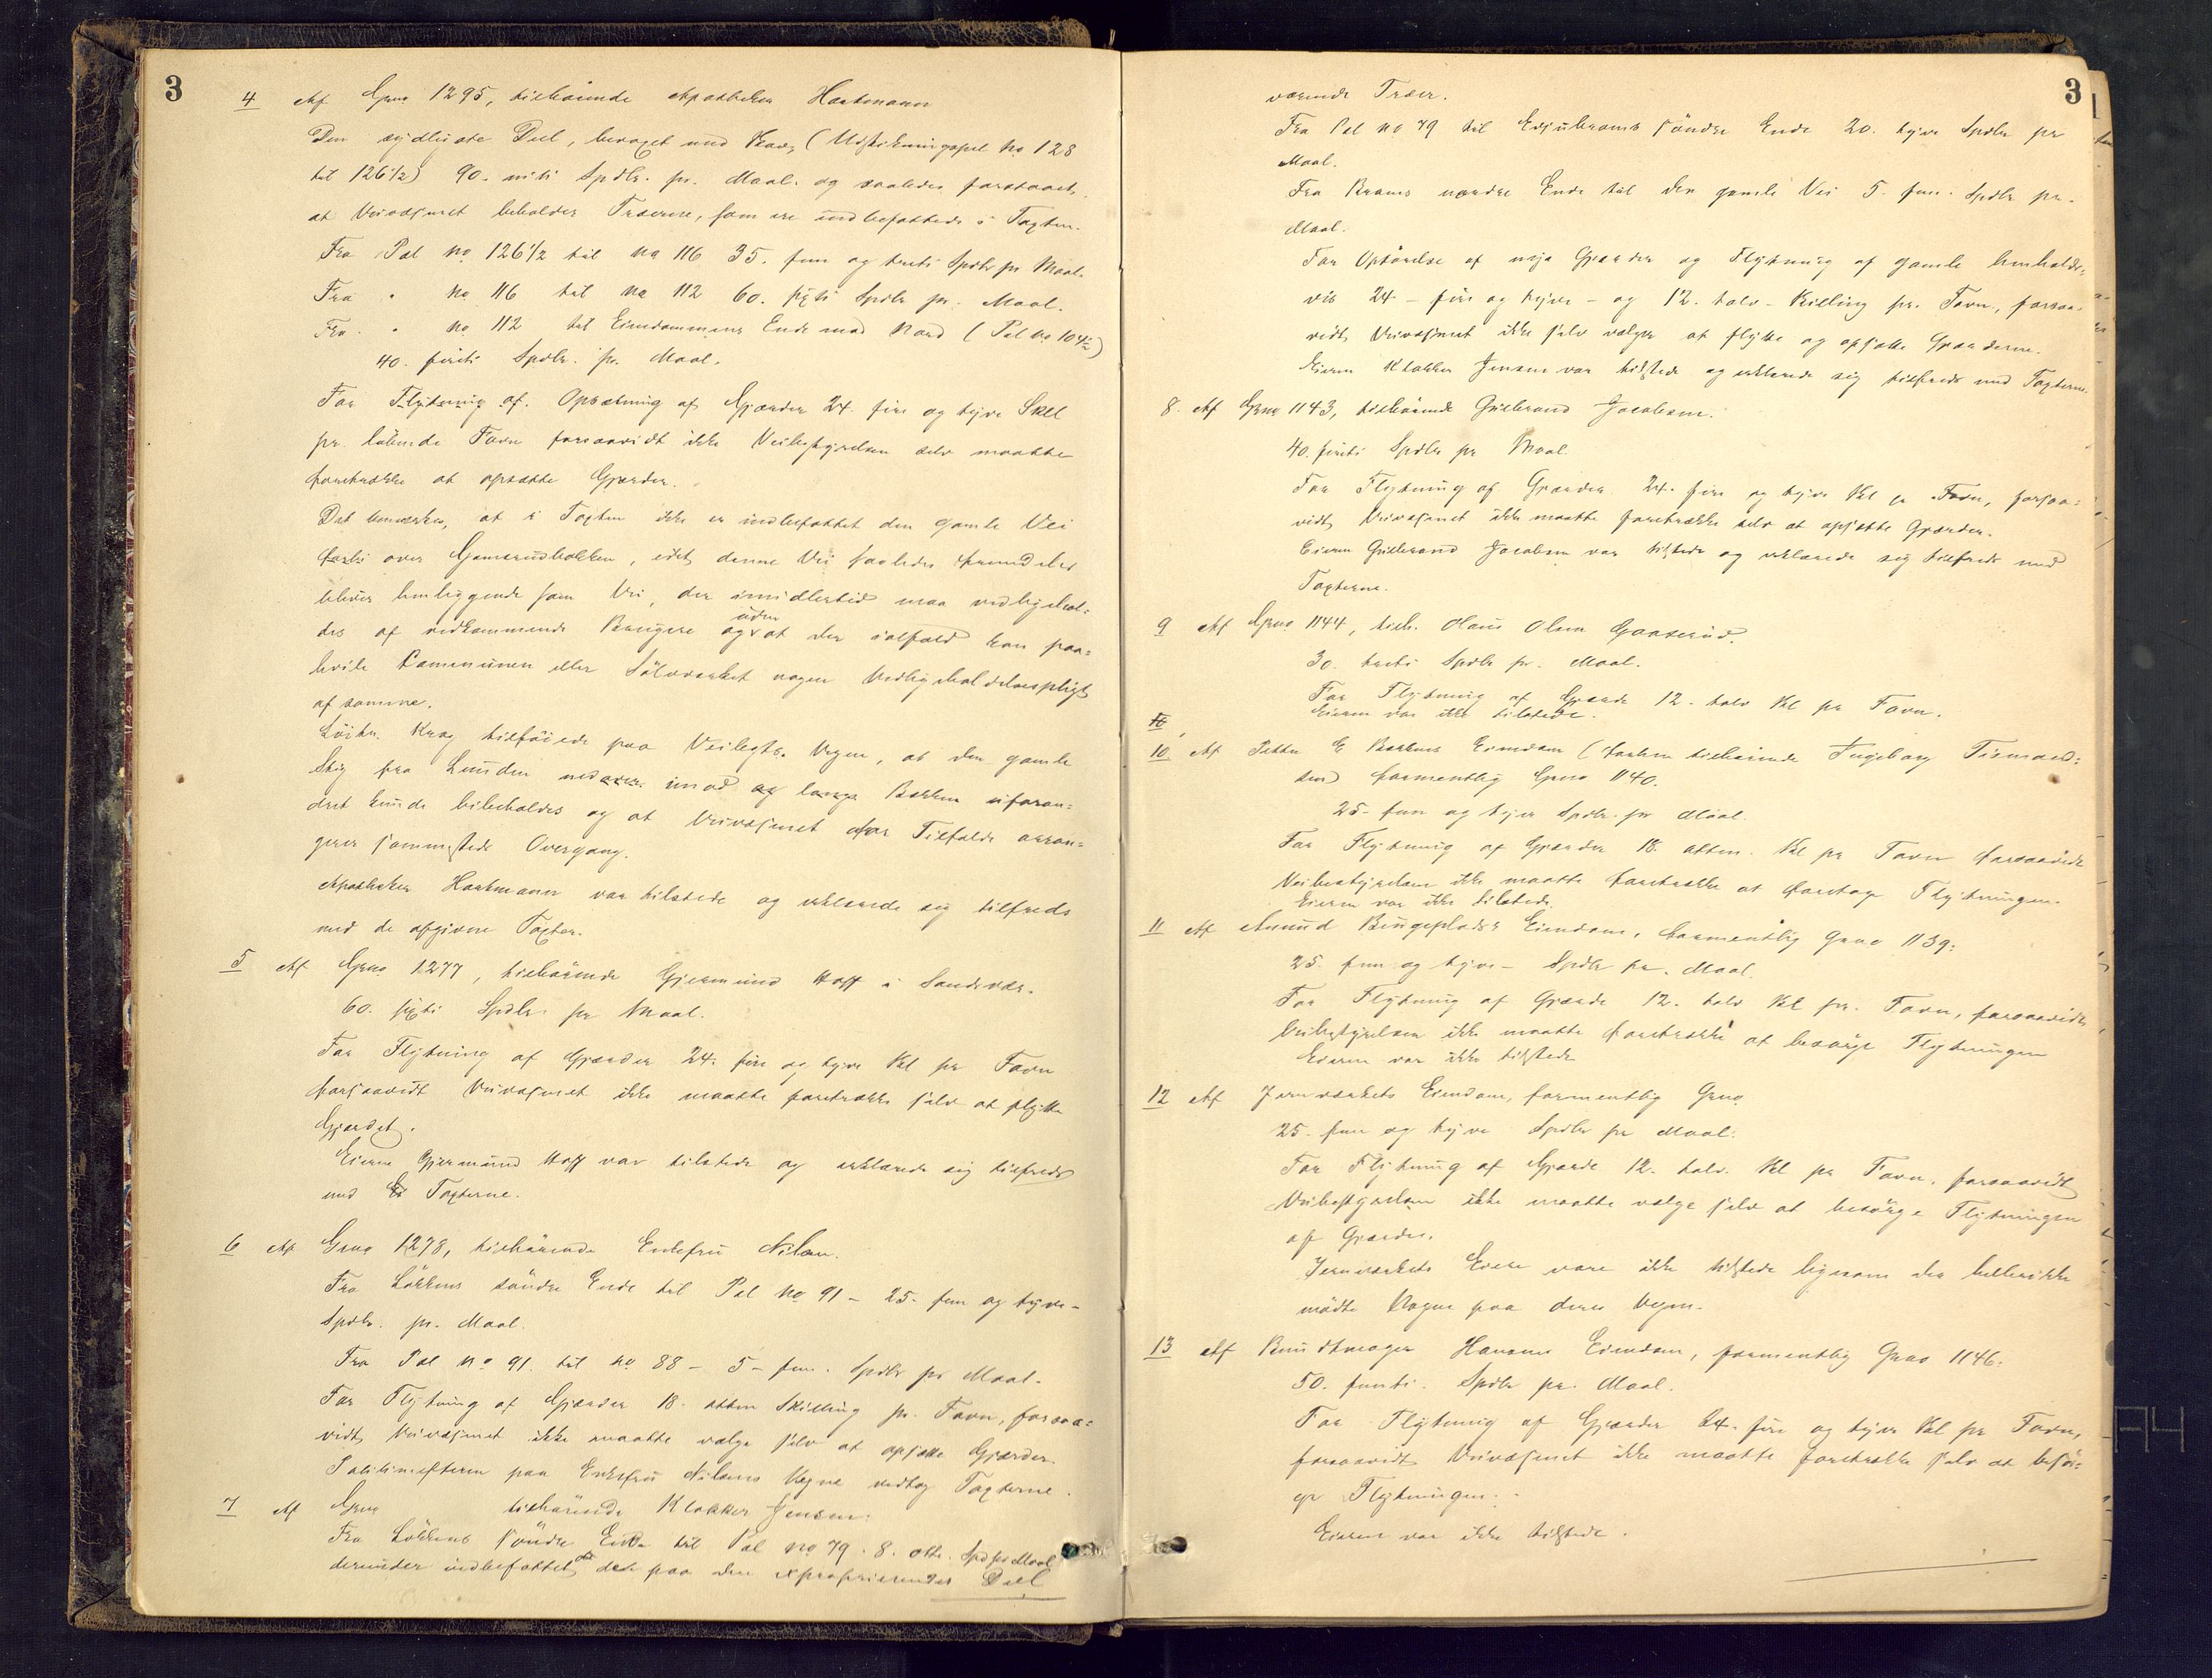 3
4 Af Grno 1295, tilhørende Apotheker Hartmann
Den sydligste Deel, bevoxet med Krat, (Udstikningspæl No 128
til 126 1/2) 90. niti Spdlr. pr. Maal. og saaledes forstaaet,
at Veivæsenet beholder Træerne, som ere indbefattede i Taxten.
Fra Pæl no 126 1/2 til no 116 35. fem og treti Spdlr pr Maal.
Fra " no 116 til no 112 60. sexti Spdlr pr. Maal.
Fra " no 112 til Eiendommens Ende mod Nord (Pæl no 104 1/2)
40. firti Spdlr. pr. Maal.
For Flytning af. Opsætning af Gjærder 24. fire og tyve Skll
pr. løbende Favn forsaavidt ikke Veibestyrelsen selv maatte
foretrække at opsætte Gjærder.
Det bemærkes, at i Taxten ikke er indbefattet den gamle Vei
forbi over Gamsrudbakken, idet denne Vei saaledes fremdeles
bliver henliggende som Vei, der imidlertid maa vedligehol-
des af vedkommende Brugere og uden at der ialfald kan paa-
hvile Communen eller Sølvværket nogen Vedligeholdelsespligt
af samme.
Løitn. Krag tilføiede paa Veilegts. Vegne, at den gamle
Stig fra Lunden imod og langs Bækken uforan-
dret kunde bibeholdes og at Veivæsenet for Tilfælde arran-
gerer sammesteds Overgang.
Apotheker Hartmann var tilstede og erklærede sig tilfreds
med de afgivne Taxter.
5 Af Grno 1277, tilhørende Gjermund Hoff i Sandsvær.
60. sexti Spdlr pr Maal.
For Flytning af Gjærder 24. fire og tyve Skl pr Favn
forsaavidt Veivæsenet ikke maatte foretrække selv at flytte
Gjærdet.
Eieren Gjermund Hoff var tilstede og erklærede sig tilfreds
med Taxterne.
6 Af Grno 1278, tilhørende Enkefru Nilsen.
Fra Løkkens søndre Ende til Pæl No 91 - 25. fem og tyve-
Spdlr. pr. Maal.
Fra Pæl no 91. til no 88 - 5 - fem. Spdlr pr Maal.
For Flytning af Gjærder 18. atten Skilling pr. Favn, forsaa-
vidt Veivæsenet ikke maatte vælge selv at opsætte Gjærder.
paa Enkefru Nilsens Vegne vedtog Taxterne.
7 Af Grno tilhørende Klokker Jensen:
Fra Løkkens søndre Ende til Pæl no 79. 8. otte. Spd pr Maal
derunder indbefattet de paa den exproprierendes Deel
3
værende Træer.
Fra Pæl no 79 til søndre Ende 20. tyve Spdlr pr
Maal.
Fra nordre Ende til den gamle Vei 5. fem. Spdlr pr.
Maal.
For Opførelse af nye Gjærder og Flytning af gamle henholds-
vis 24. - fire og tyve - og 12. tolv - Skilling pr. Favn, forsaa-
vidt Veivæsenet ikke selv vælger at flytte og opsætte Gjærderne.
Eieren Klokker Jensen var tilstede og erklærede sig tilfreds med Taxterne.
8. Af Grno 1143, tilhørende Gulbrand Jacobsen.
40. firti Spdlr pr Maal.
For Flytning af Gjærder 24. fire og tyve Skl pr Favn, forsaa-
vidt Veivæsenet ikke maatte foretrække selv at opsætte Gjærder.
Eieren Gulbrand Jacobsen var tilstede og erklærede sig tilfreds med
Taxterne.
9 Af Grno 1144, tilh. Olaus Olsen Gaaserud.
30. treti Spdlr pr. Maal.
For Flytning af Gjærde 12. tolv Skl pr Favn.
Eieren var ikke tilstede.
10
10. Af Petter E Eiendom (forhen tilhørende Ingeborg
formentlig Grno 1140.
25. fem og tyve Spdlr. pr Maal.
For Flytning af Gjærder 18. atten. Skl pr Favn forsaavidt
Veibestyrelsen ikke maatte foretrække at foretage Flytningen.
Eieren var ikke tilstede.
11 Af Amund Eiendom, formentlig Grno 1139:
25. fem og tyve - Spdlr pr. Maal.
For Flytning af Gjærde 12. tolv Skl pr. Favn, forsaavidt
Veibestyrelsen ikke maatte foretrække at besørge Flytningen
Eieren var ikke tilstede
12 Af Jernværkets Eiendom, formentlig Grno
25. fem og tyve Spdlr pr Maal.
For Flytning af Gjærde 12. tolv. Skl pr Favn. forsaavidt
Veibestyrelsen ikke maatte vælge selv at besørge Flytningen
af Gjærder.
Jernværkets Eiere vare ikke tilstede ligesom der hellerikke
mødte Nogen paa deres Vegne.
13 Af Bundtmager Hansens Eiendom, formentlig Grno 1146:
50. femti. Spdlr pr. Maal.
For Flytning af Gjærder 24. fire og tyve Skl pr Favn,
forsaavidt Veivæsenet ikke maatte foretrække selv at besør-
ge Flytningen.
Eieren var ikke tilstede.